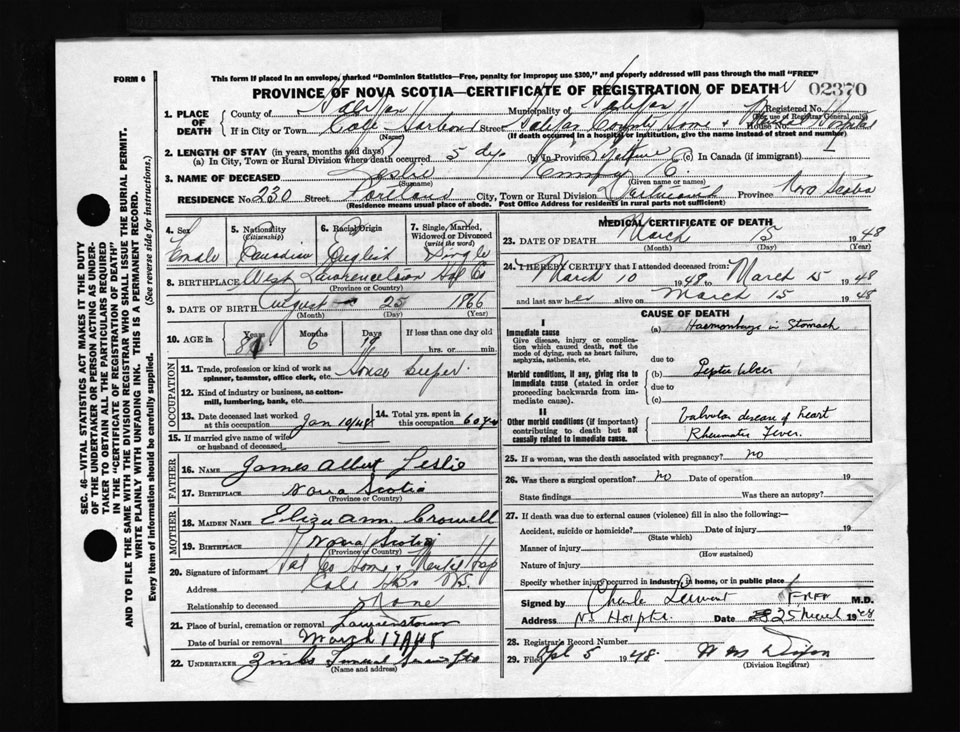 FORM 6
This form if placed in an envelope, marked "Dominion Statistics—Free, penalty for improper use $300," and properly addressed will pass through the mail "FREE"
PROVINCE OF NOVA SCOTIA—CERTIFICATE OF REGISTRATION OF DEATH
02370
1. PLACE OF DEATH County of Halifax Municipality of Halifax Registered No.
(For use of Registrar General only)
If in City or Town Cole Harbour Street Halifax County Home & Mental Hospital House No.
(Name) (If death occurred in a hospital or institution, give the name instead of street and number)
2. LENGTH OF STAY (in years, months and days)
(a) In City, Town or Rural Division where death occurred 5 dys (b) In Province Lifetime (c) In Canada (if immigrant)
3. NAME OF DECEASED Leslie E.
(Surname) (Given name or names)
RESIDENCE No. 230 Street Portland City, Town or Rural Division Dartmouth Province Nova Scotia
(Residence means usual place of abode. Post Office Address for residents in rural parts not sufficient)
4. Sex Female
5. Nationality (Citizenship) Canadian
6. Racial Origin English
7. Single, Married, Widowed or Divorced (write the word) Single
8. BIRTHPLACE West Lawrencetown Hfx Co
(Province or Country)
9. DATE OF BIRTH August 25 1866
(Month) (Day) (Year)
10. AGE in Years 81 Months 6 Days If less than one day old
hrs. or min.
OCCUPATION
11. Trade, profession or kind of work as spinner, teamster, office clerk, etc. House keeper.
12. Kind of industry or business, as cotton-mill, lumbering, bank, etc.
13. Date deceased last worked at this occupation Jan 10/48
14. Total yrs. spent in this occupation 60 yrs
15. If married give name of wife or husband of deceased
FATHER
16. NAME James Albert Leslie
17. BIRTHPLACE Nova Scotia
(Province or Country)
MOTHER
18. MAIDEN NAME Eliza Ann Crowell
19. BIRTHPLACE Nova Scotia
(Province or Country)
20. Signature of informant Hal Co Home & Mental Hosp
Address Cole Hbr N.S.
Relationship to deceased None
21. Place of burial, cremation or removal Lawrencetown
Date of burial or removal March 17/48
22. UNDERTAKER Funeral Service Ltd
(Name and address)
MEDICAL CERTIFICATE OF DEATH
23. DATE OF DEATH March 15 1948
(Month) (Day) (Year)
24. I HEREBY CERTIFY that I attended deceased from:
March 10 1948 to March 15 1948
and last saw her alive on March 15 1948
CAUSE OF DEATH
I
Immediate cause
Give disease, injury or complication which caused death, not the mode of dying, such as heart failure, asphyxia, asthenia, etc.
(a) Haemorrhage in Stomach
due to
Morbid conditions, if any, giving rise to immediate cause (stated in order proceeding backwards from immediate cause).
(b) Peptic Ulcer
due to
(c)
II
Other morbid conditions (if important) contributing to death but not causally related to immediate cause.
Valvular disease of Heart
Rheumatic Fever.
25. If a woman, was the death associated with pregnancy? no
26. Was there a surgical operation? no Date of operation 19
State findings Was there an autopsy?
27. If death was due to external causes (violence) fill in also the following:—
Accident, suicide or homicide? Date of injury 19
(State which)
Manner of injury
(How sustained)
Nature of injury
Specify whether injury occurred in industry, in home, or in public place
Signed by Charles M.D.
Address Date 25 March 1948
28. Registrar's Record Number
29. Filed Apl 5 1948.
(Division Registrar)
SEC. 46—VITAL STATISTICS ACT MAKES IT THE DUTY
OF THE UNDERTAKER OR PERSON ACTING AS UNDERTAKER
TO OBTAIN ALL THE PARTICULARS REQUIRED
IN THE "CERTIFICATE OF REGISTRATION OF DEATH"
AND TO FILE THE SAME WITH THE DIVISION REGISTRAR WHO SHALL ISSUE THE BURIAL PERMIT.
WRITE PLAINLY WITH UNFADING INK. THIS IS A PERMANENT RECORD.
Every item of information should be carefully supplied. (See reverse side for instructions.)